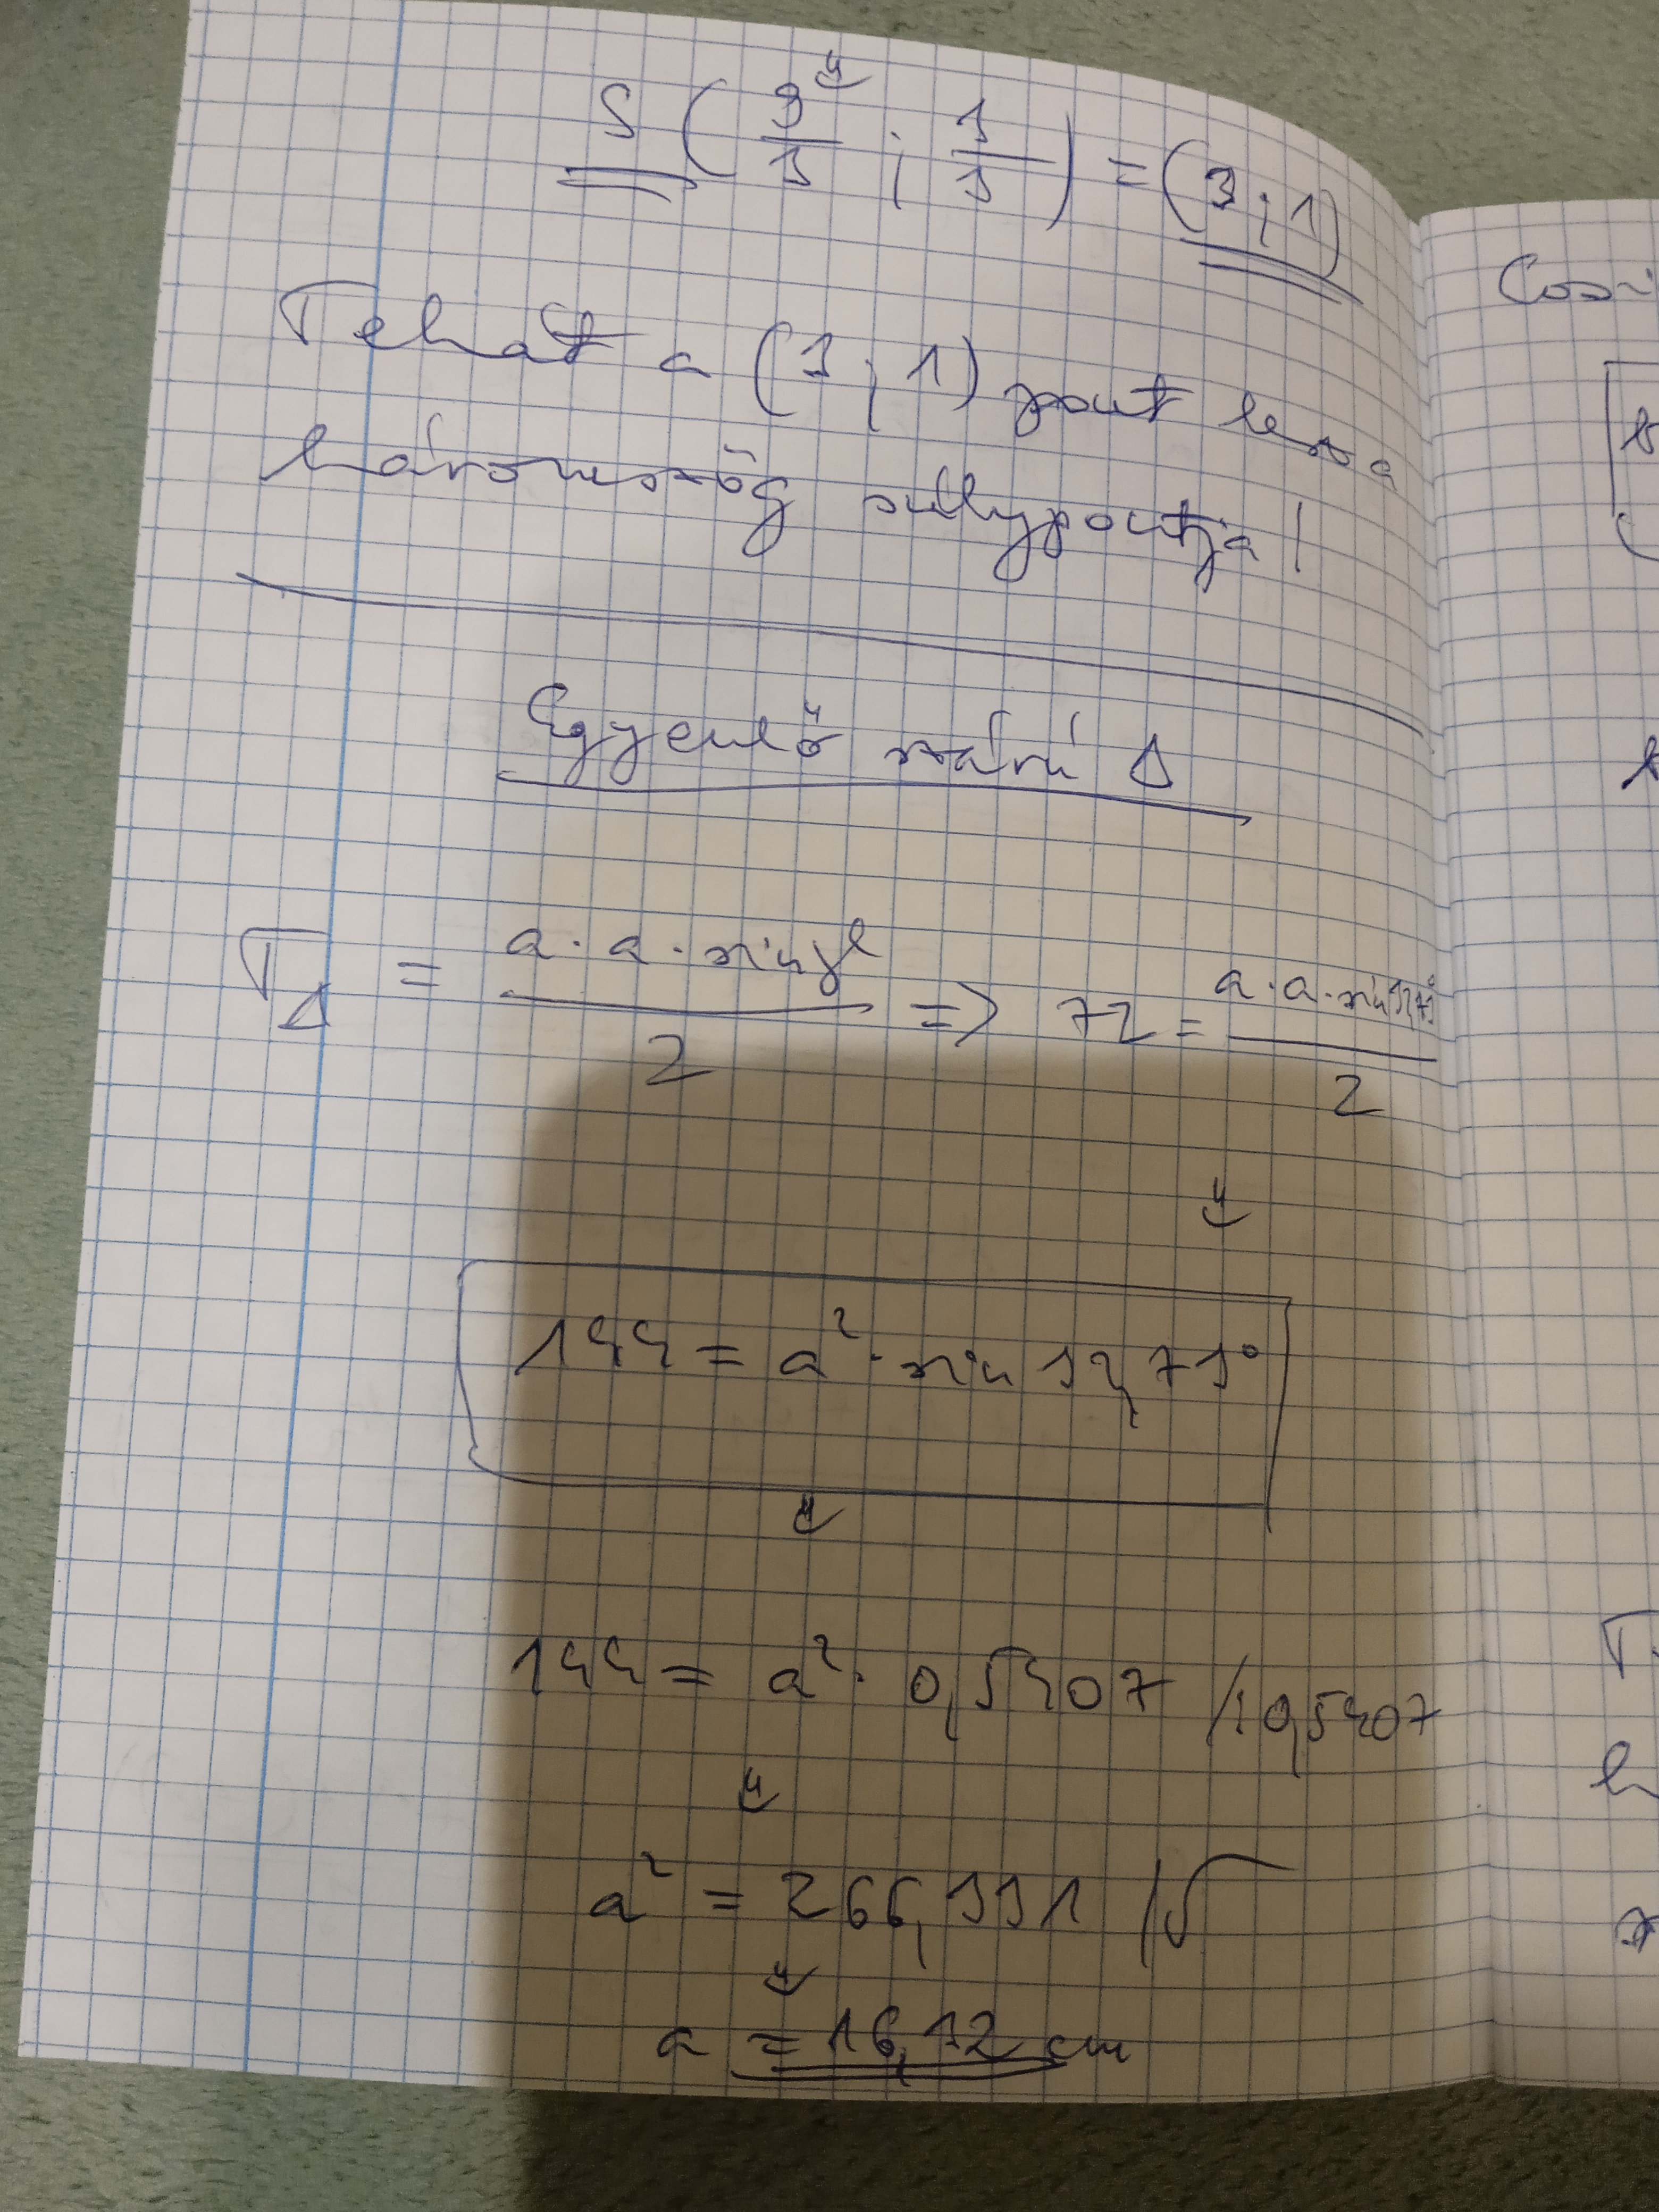 S (9/3 ; 3/3) = (3;1)
Tehát a (3;1) pont lesz a
háromszög súlypontja!
Egyenlő szárú Δ
T_Δ = a·a·sin γ / 2 => 72 = a·a·sin 32,73° / 2
144 = a²·sin 32,73°
144 = a²·0,5407 /:0,5407
a² = 266,331 /√
a = 16,32 cm